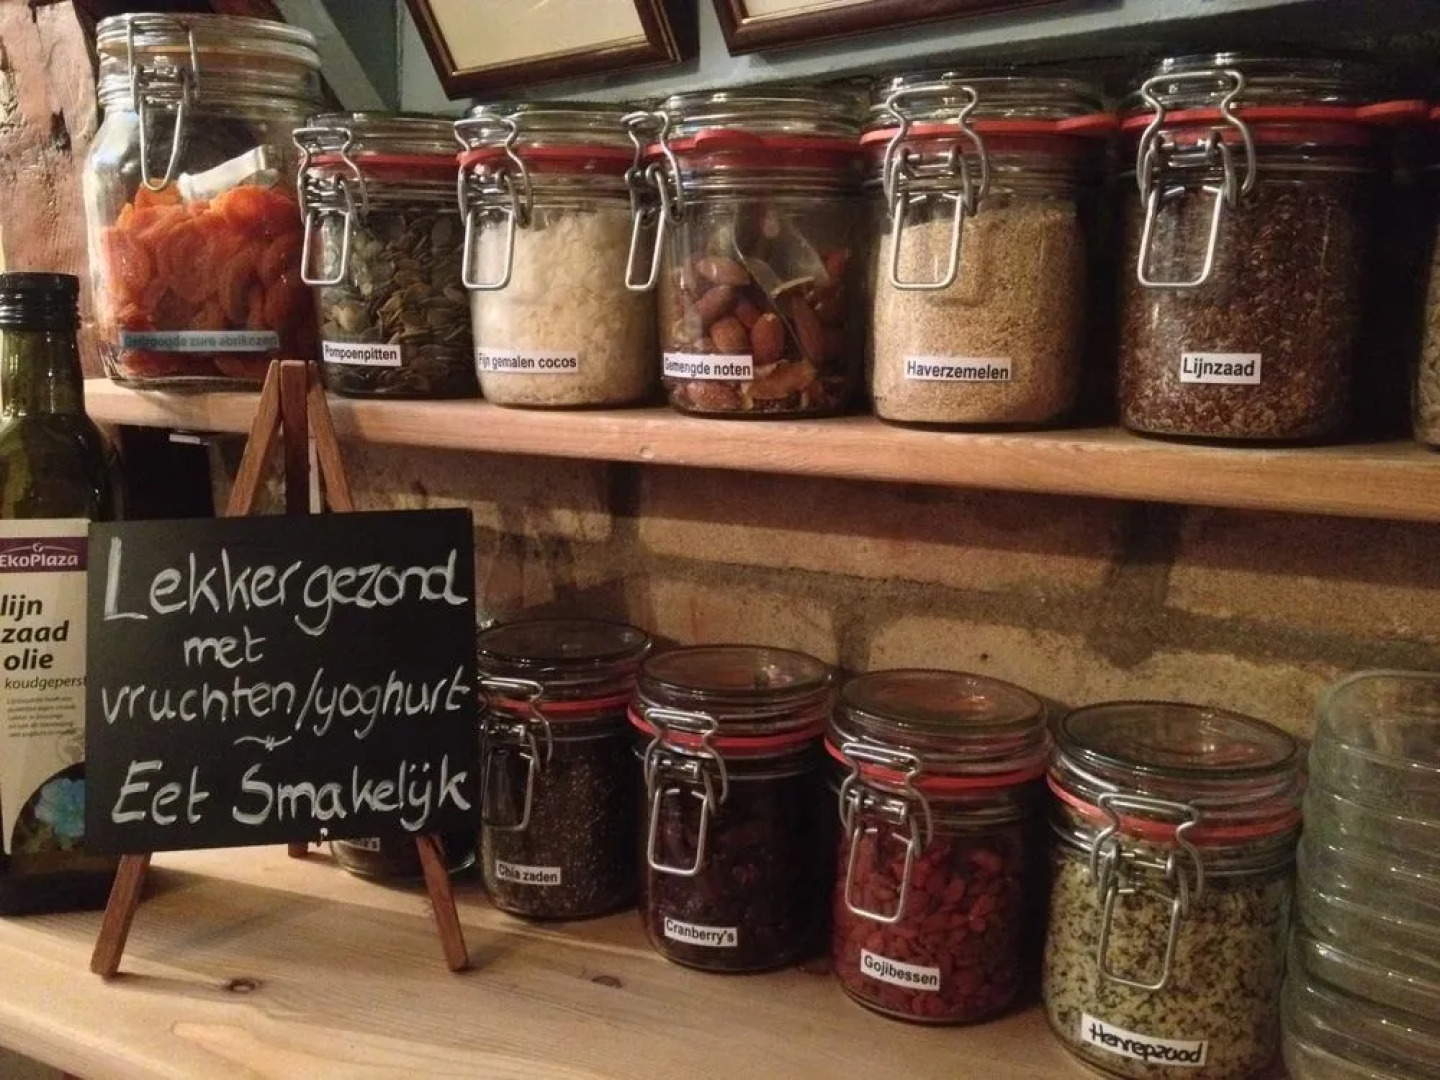 Gedroogde zure abrikozen
Pompoenpitten
Fijn gemalen cocos
Gemengde noten
Haverzemelen
Lijnzaad
EkoPlaza
lijn
zaad
olie
koudgeperst
Lekker gezond
met
vruchten/yoghurt
~
Eet Smakelijk
Chia zaden
Cranberry's
Gojibessen
Hennepzaad